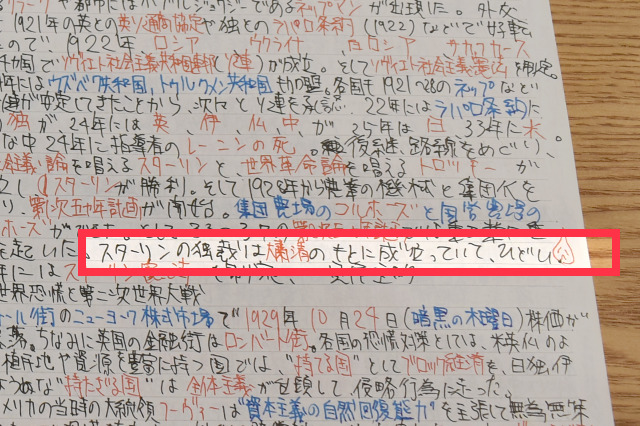 や都市にはバブルジョワジーであるネップマンが出現した。外交
1921年の英との英ソ通商協定や独とのラパロ条約(1922)などで好転
ので、1922年、ロシア ウクライナ 白ロシア ザカフカース
4カ国でソヴィエト社会主義共和国連邦(ソ連)が成立。そしてソヴィエト社会主義憲法を制定。
年にはウズベク共和国、トゥルクメン共和国も加盟。各国も1921〜28のネップなど
が安定してきたことから、次々とソ連を承認。22年にはラパロ条約に
独が24年には英、伊、仏、中、が、25年は日、33年に米
な中24年に指導者のレーニンの死。後継、路線をめぐり、
会主義論を唱えるスターリンと、世界革命論を唱えるトロツキーが
し、スターリンが勝利。そして1928年から農業の機械化と集団化を
り、第一次五カ年計画が開始。集団農場のコルホーズと国営農場の
ホーズが
を起いた。スターリンの独裁は粛清のもとに成り立っていて、ひどい
年には
世界恐慌と第二次世界大戦
ール街のニューヨーク株式市場で1929年10月24日(暗黒の木曜日)株価が
落。ちなみに英国の金融街はロンバート街。各国の恐慌対策としては、米英仏のよ
植民地や資源を豊富に持つ国では、"持てる国"としてブロック経済を、日独伊
ような"持たざる国"は全体主義が台頭して、侵略行為に走った。
メリカの当時の大統領フーヴァーは"資本主義の自然回復能力"を主張して無為無策